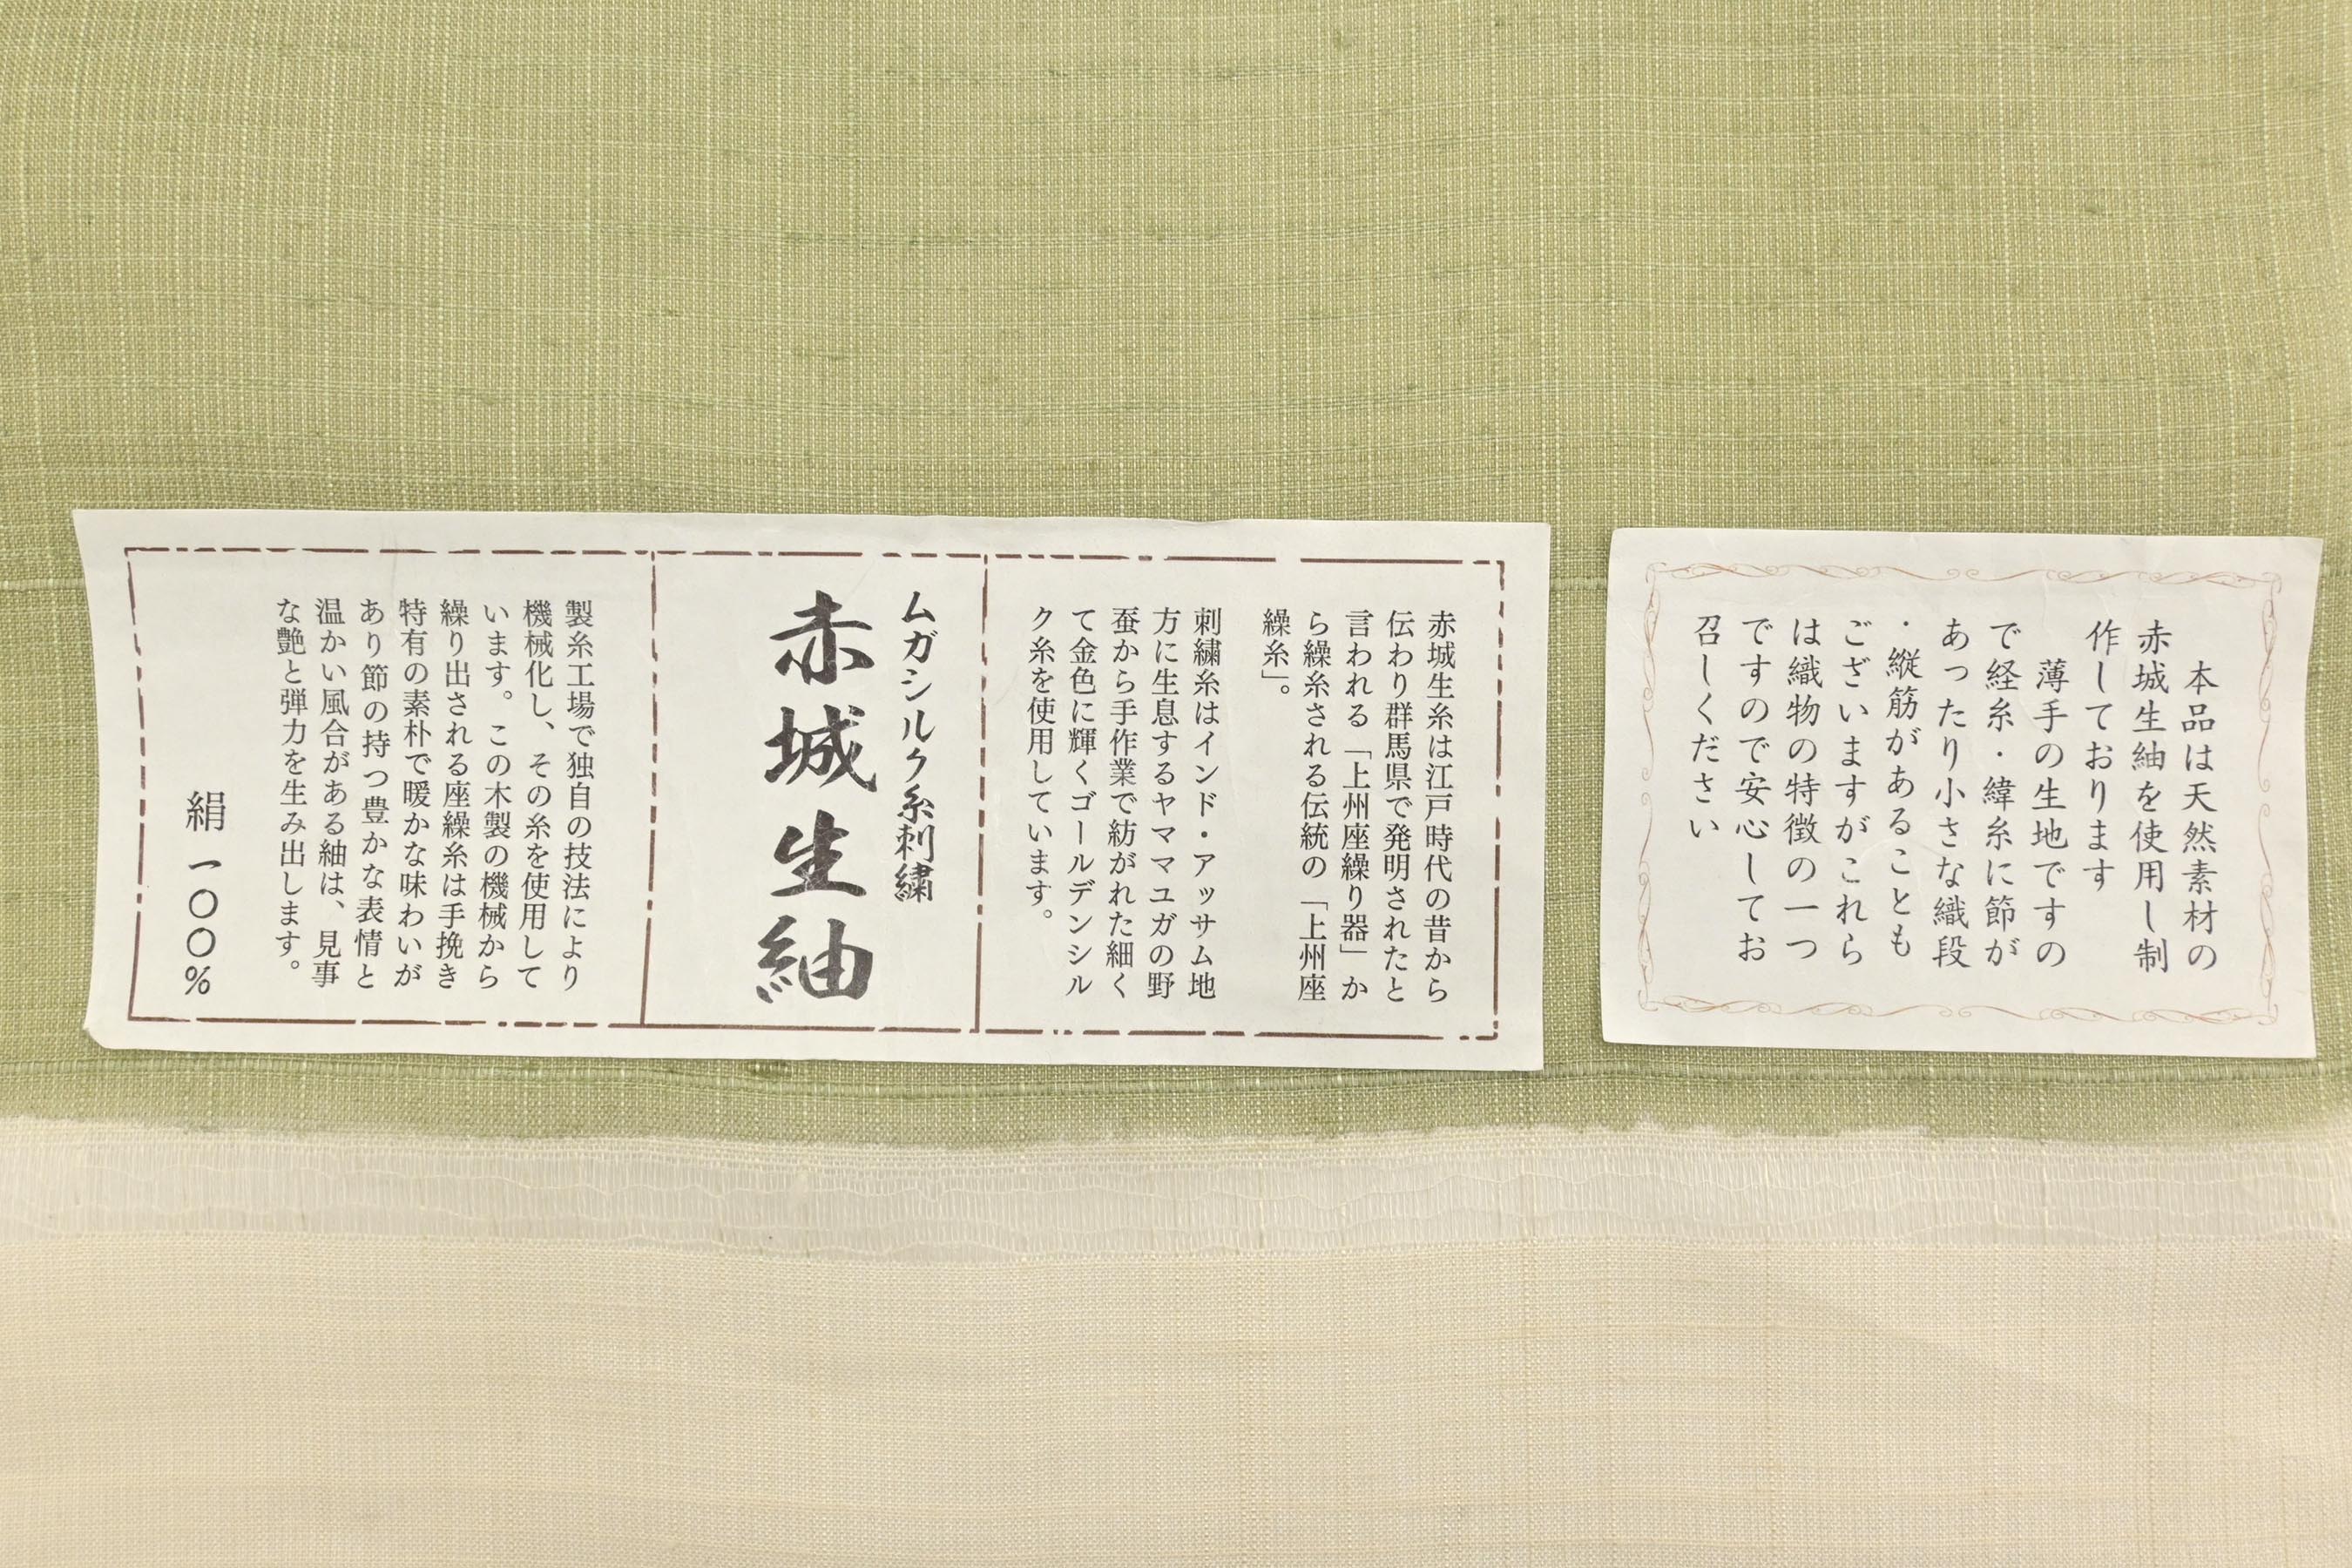 本品は天然素材の
赤城生紬を使用し制
作しております
薄手の生地ですの
で経糸・緯糸に節が
あったり小さな織段
・縦筋があることも
ございますがこれら
は織物の特徴の一つ
ですので安心してお
召しください
赤城生糸は江戸時代の昔から
伝わり群馬県で発明されたと
言われる「上州座繰り器」か
ら繰糸される伝統の「上州座
繰糸」。
刺繍糸はインド・アッサム地
方に生息するヤママユガの野
蚕から手作業で紡がれた細く
て金色に輝くゴールデンシル
ク糸を使用しています。
ムガシルク糸刺繍
赤城生紬
製糸工場で独自の技法により
機械化し、その糸を使用して
います。この木製の機械から
繰り出される座繰糸は手挽き
特有の素朴で暖かな味わいが
あり節の持つ豊かな表情と
温かい風合がある紬は、見事
な艶と弾力を生み出します。
絹 一〇〇%